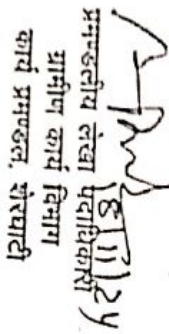 18/11/24
प्रमण्डलीय लेखा पदाधिकारी
ग्रामीण कार्य विभाग
कार्य प्रमण्डल, शेरघाटी